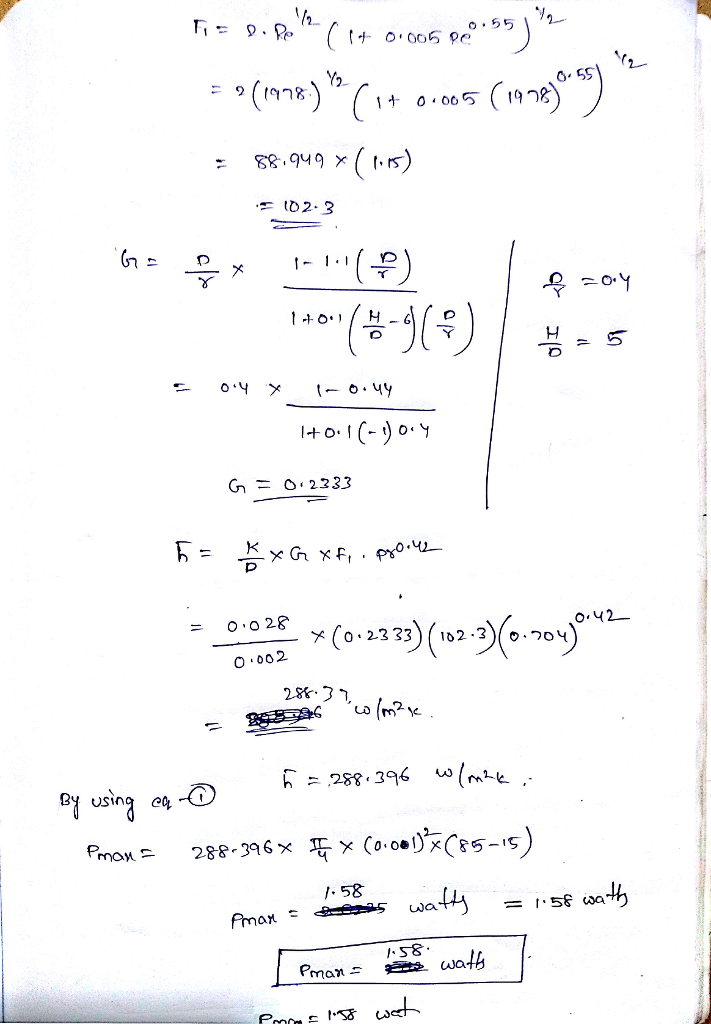 F₁ = 2. Re^1/2 ( 1 + 0.005 Re^0.55 )^1/2
= 2 (1978)^1/2 ( 1 + 0.005 (1978)^0.55 )^1/2
= 88.949 × ( 1.15 )
= 102.3
G = D/r × (1 - 1.1 (D/r)) / (1 + 0.1 (H/D - 6) (D/r))
D/r = 0.4
H/D = 5
= 0.4 × (1 - 0.44) / (1 + 0.1 (-1) 0.4)
G = 0.2333
h̄ = K/D × G × F₁ . Pr^0.42
= 0.028/0.002 × (0.2333) (102.3) (0.704)^0.42
= 288.37 w/m²k.
h̄ = 288.396 w/m²k.
By using eq - ①
Pmax = 288.396 × π/4 × (0.001)² × (85 - 15)
Pmax = 1.58 watts = 1.58 watts
Pmax = 1.58. watts
Pmax = 1.58 wat